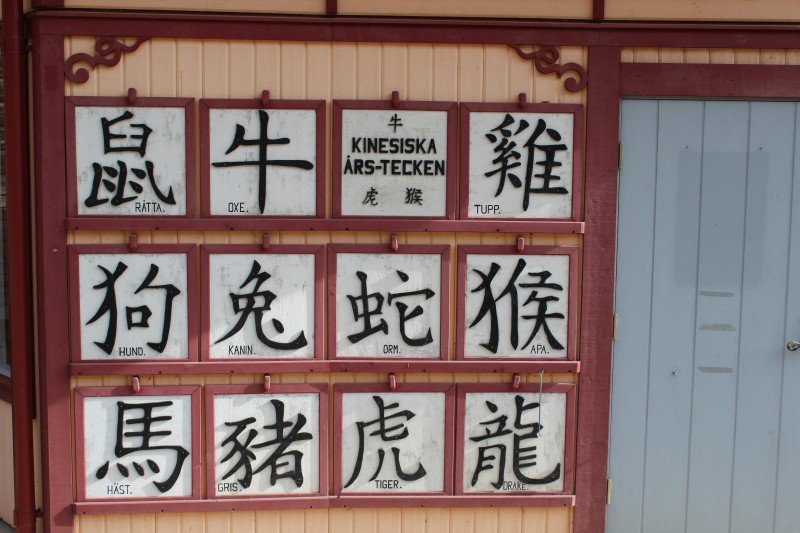 鼠
RÅTTA.
牛
OXE.
牛
KINESISKA
ÅRS-TECKEN
虎 猴
雞
TUPP.
狗
HUND.
兔
KANIN.
蛇
ORM.
猴
APA.
馬
HÄST.
豬
GRIS.
虎
TIGER.
龍
DRAKE.